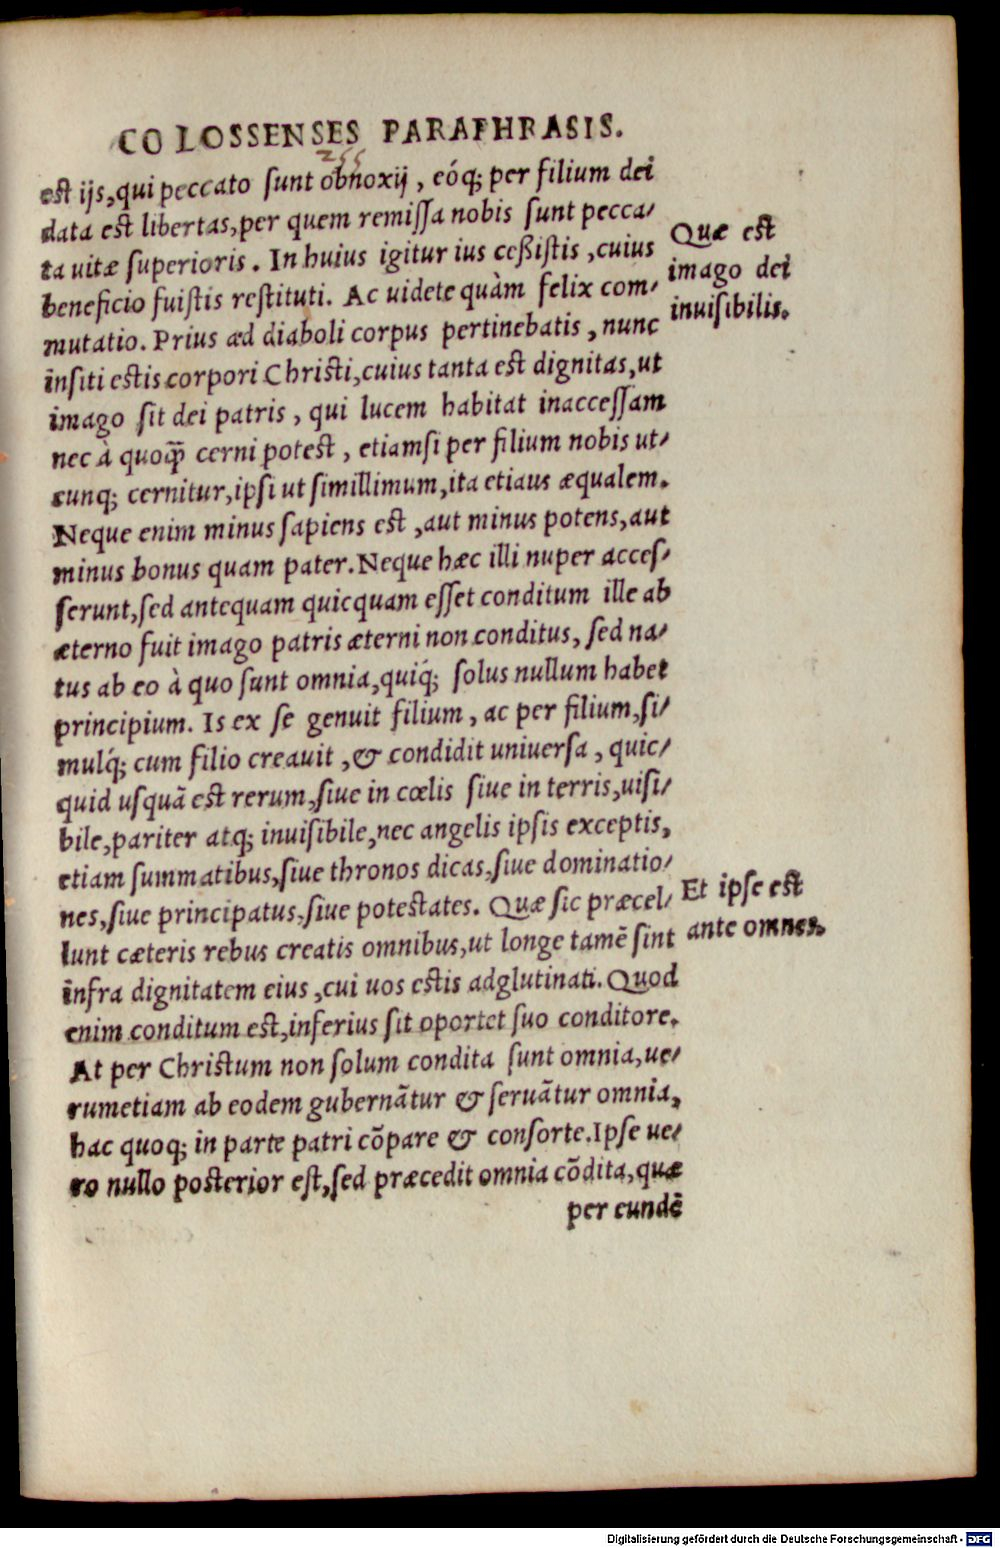 CO LOSSENSES PARAPHRASIS.
255
est ijs, qui peccato sunt obnoxij, eóq; per filium dei
data est libertas, per quem remissa nobis sunt pecca-
ta uitæ superioris. In huius igitur ius ceßistis, cuius
beneficio fuistis restituti. Ac uidete quàm felix com-
mutatio. Prius ad diaboli corpus pertinebatis, nunc
insiti estis corpori Christi, cuius tanta est dignitas, ut
imago sit dei patris, qui lucem habitat inaccessam
nec à quoq̃ cerni potest, etiamsi per filium nobis ut-
cunq; cernitur, ipsi ut simillimum, ita etiaus æqualem.
Neque enim minus sapiens est, aut minus potens, aut
minus bonus quam pater. Neque hæc illi nuper acces-
serunt, sed antequam quicquam esset conditum ille ab
æterno fuit imago patris æterni non conditus, sed na-
tus ab eo à quo sunt omnia, quiq́; solus nullum habet
principium. Is ex se genuit filium, ac per filium, si-
mulq́; cum filio creauit, & condidit uniuersa, quic-
quid usquã est rerum, siue in cœlis siue in terris, uisi-
bile, pariter atq; inuisibile, nec angelis ipsis exceptis,
etiam summatibus, siue thronos dicas, siue dominatio-
nes, siue principatus, siue potestates. Quæ sic præcel-
lunt cæteris rebus creatis omnibus, ut longe tamẽ sint
infra dignitatem eius, cui uos estis adglutinati. Quod
enim conditum est, inferius sit oportet suo conditore.
At per Christum non solum condita sunt omnia, ue-
rumetiam ab eodem gubernãtur & seruãtur omnia,
hac quoq; in parte patri cõpare & consorte. Ipse ue-
ro nullo posterior est, sed præcedit omnia cõdita, quæ
per eundẽ
Quæ est
imago dei
inuisibilis.
Et ipse est
ante omnes.
Digitalisierung gefördert durch die Deutsche Forschungsgemeinschaft - DFG